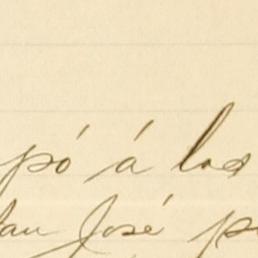 pó á los
San José p